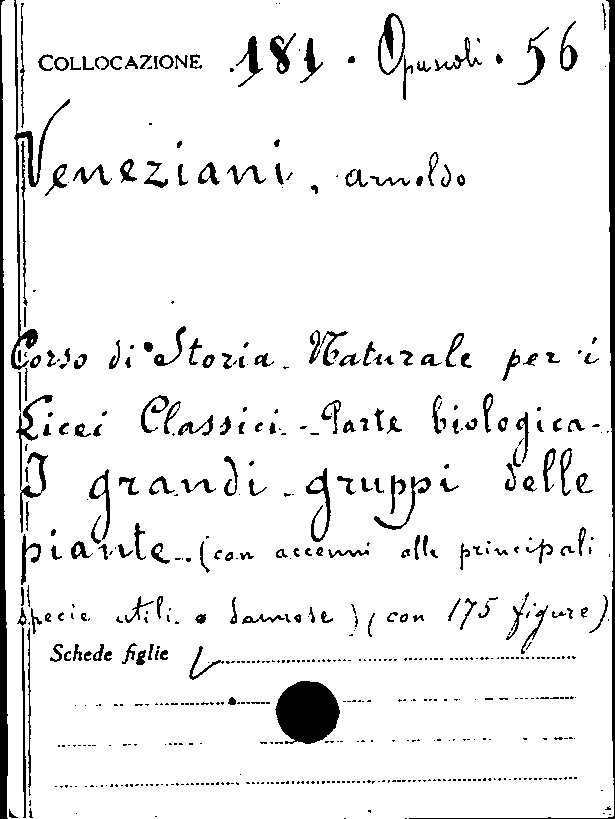 COLLOCAZIONE 181 . Opuscoli . 56
Veneziani, Arnoldo
Corso di Storia Naturale per i
Licei Classici - Parte biologica -
I grandi gruppi delle
piante - (con accenni alle principali
specie utili o dannose) (con 175 figure)
Schede figlie